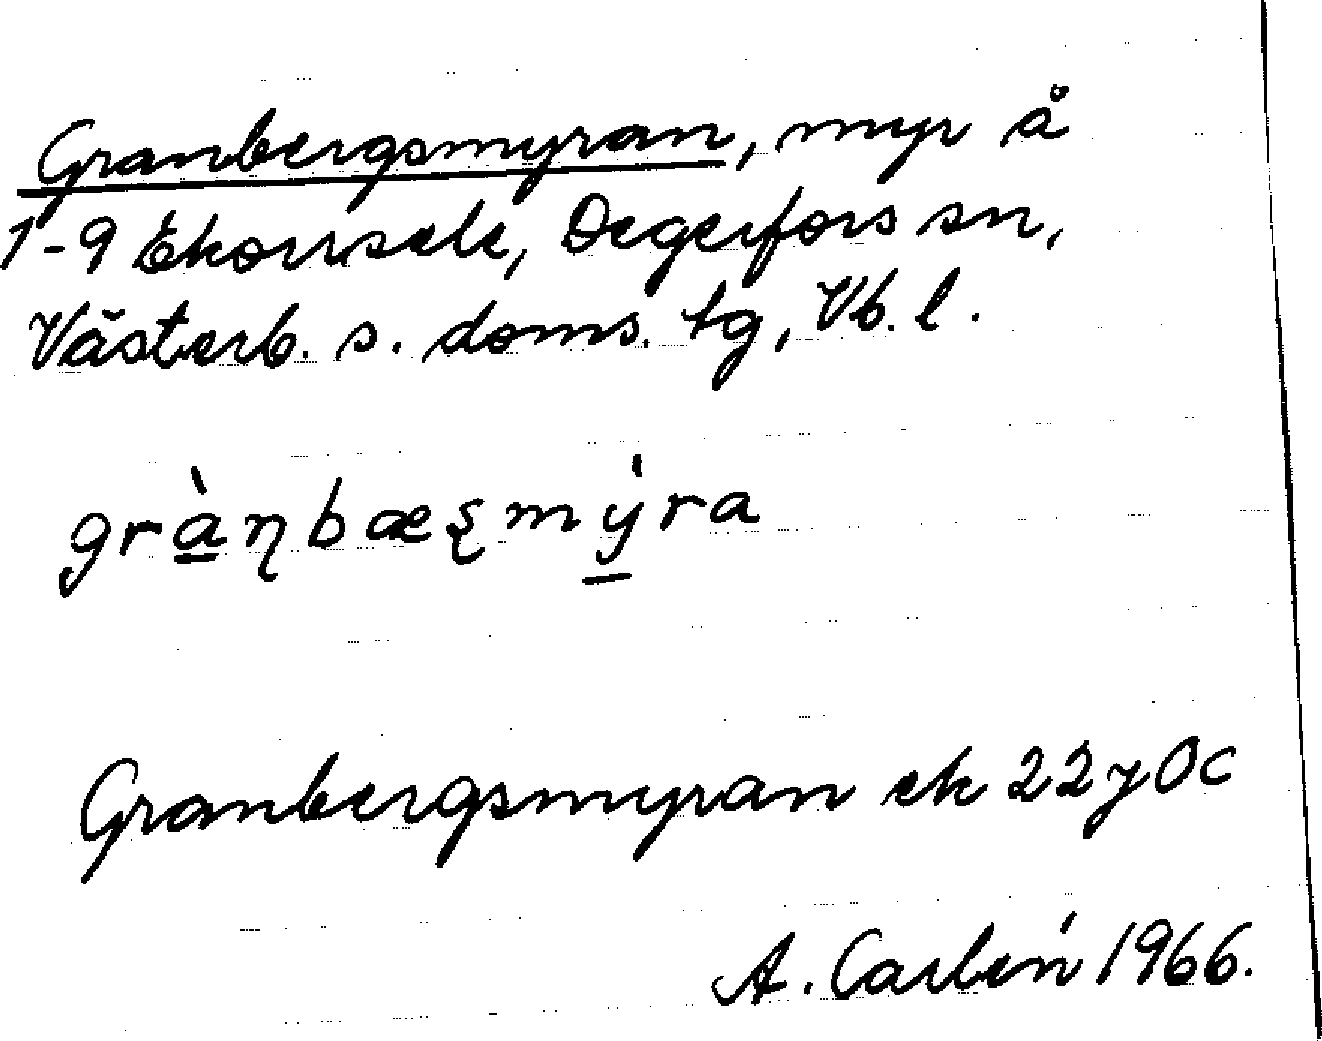 Granbergsmyran, myr å
1-9 Ekorrsele, Degerfors sn,
Västerb. s. doms. tg, Vb. l.
grà̠ꞃbæʂmý̠ra
Granbergsmyran ek 22 J 0c
A. Carlén 1966.